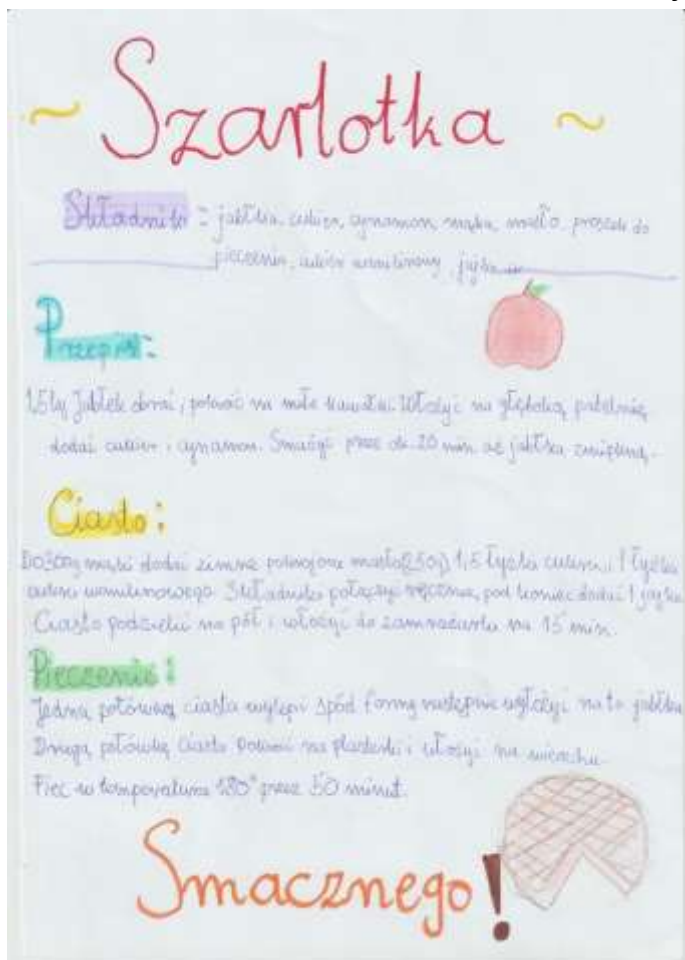 ~ Szarlotka ~
Składniki: jabłka, cukier, cynamon, mąka, masło, proszek do
pieczenia, cukier wanilinowy, jajka
Przepis:
1,5 kg Jabłek obrać, pokroić na małe kawałki. Włożyć na głęboką patelnię,
dodać cukier i cynamon. Smażyć przez ok. 20 min aż jabłka zmiękną.
Ciasto:
Do 300g mąki dodać zimne pokrojone masło(250g) 1,5 łyżki cukru i 1 łyżkę
cukru wanilinowego. Składniki połączyć ręcznie, pod koniec dodać 1 jajko
Ciasto podzielić na pół i włożyć do zamrażarki na 15 min.
Pieczenie:
Jedną połówką ciasta wylepi spód formy następnie wyłożyć na to jabłka
Drugą połówkę ciasta pokroić na plasterki i ułożyć na wierzchu.
Piec w temperaturze 180° przez 50 minut.
Smacznego!